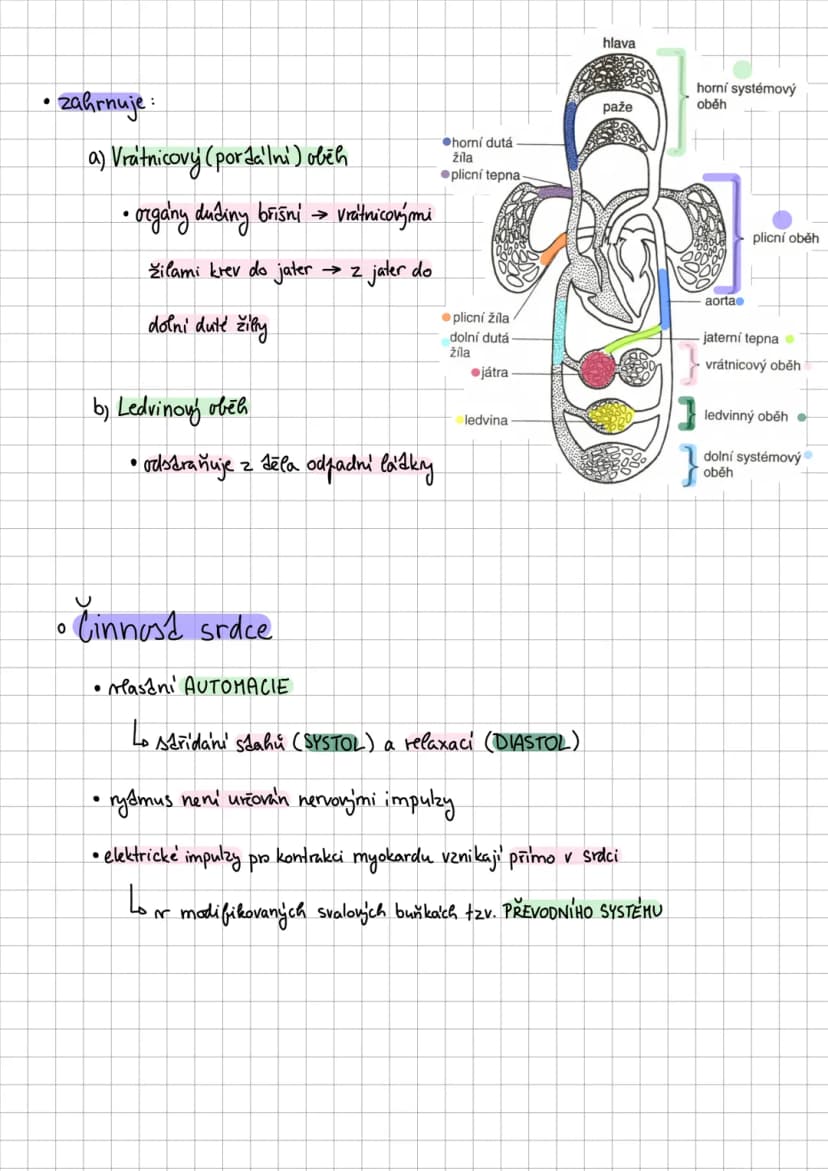 • zahrnuje:
a) Vrátnicový (portální) oběh
• orgány dutiny břišní → vrátnicovými
žilami krev do jater → z jater do
dolní duté žíly
b) Ledvinový oběh
• odstraňuje z těla odpadní látky
hlava
horní systémový
oběh
paže
horní dutá
žíla
plicní tepna
plicní oběh
aorta
plicní žíla
dolní dutá
žíla
jaterní tepna
vrátnicový oběh
játra
ledvina
ledvinný oběh
dolní systémový
oběh
Činnost srdce
• vlastní AUTOMACIE
↳ střídání stahů (SYSTOL) a relaxací (DIASTOL)
• rytmus není určován nervovými impulzy
• elektrické impulzy pro kontrakci myokardu vznikají přímo v srdci
↳ v modifikovaných svalových buňkách tzv. PŘEVODNÍHO SYSTÉMU